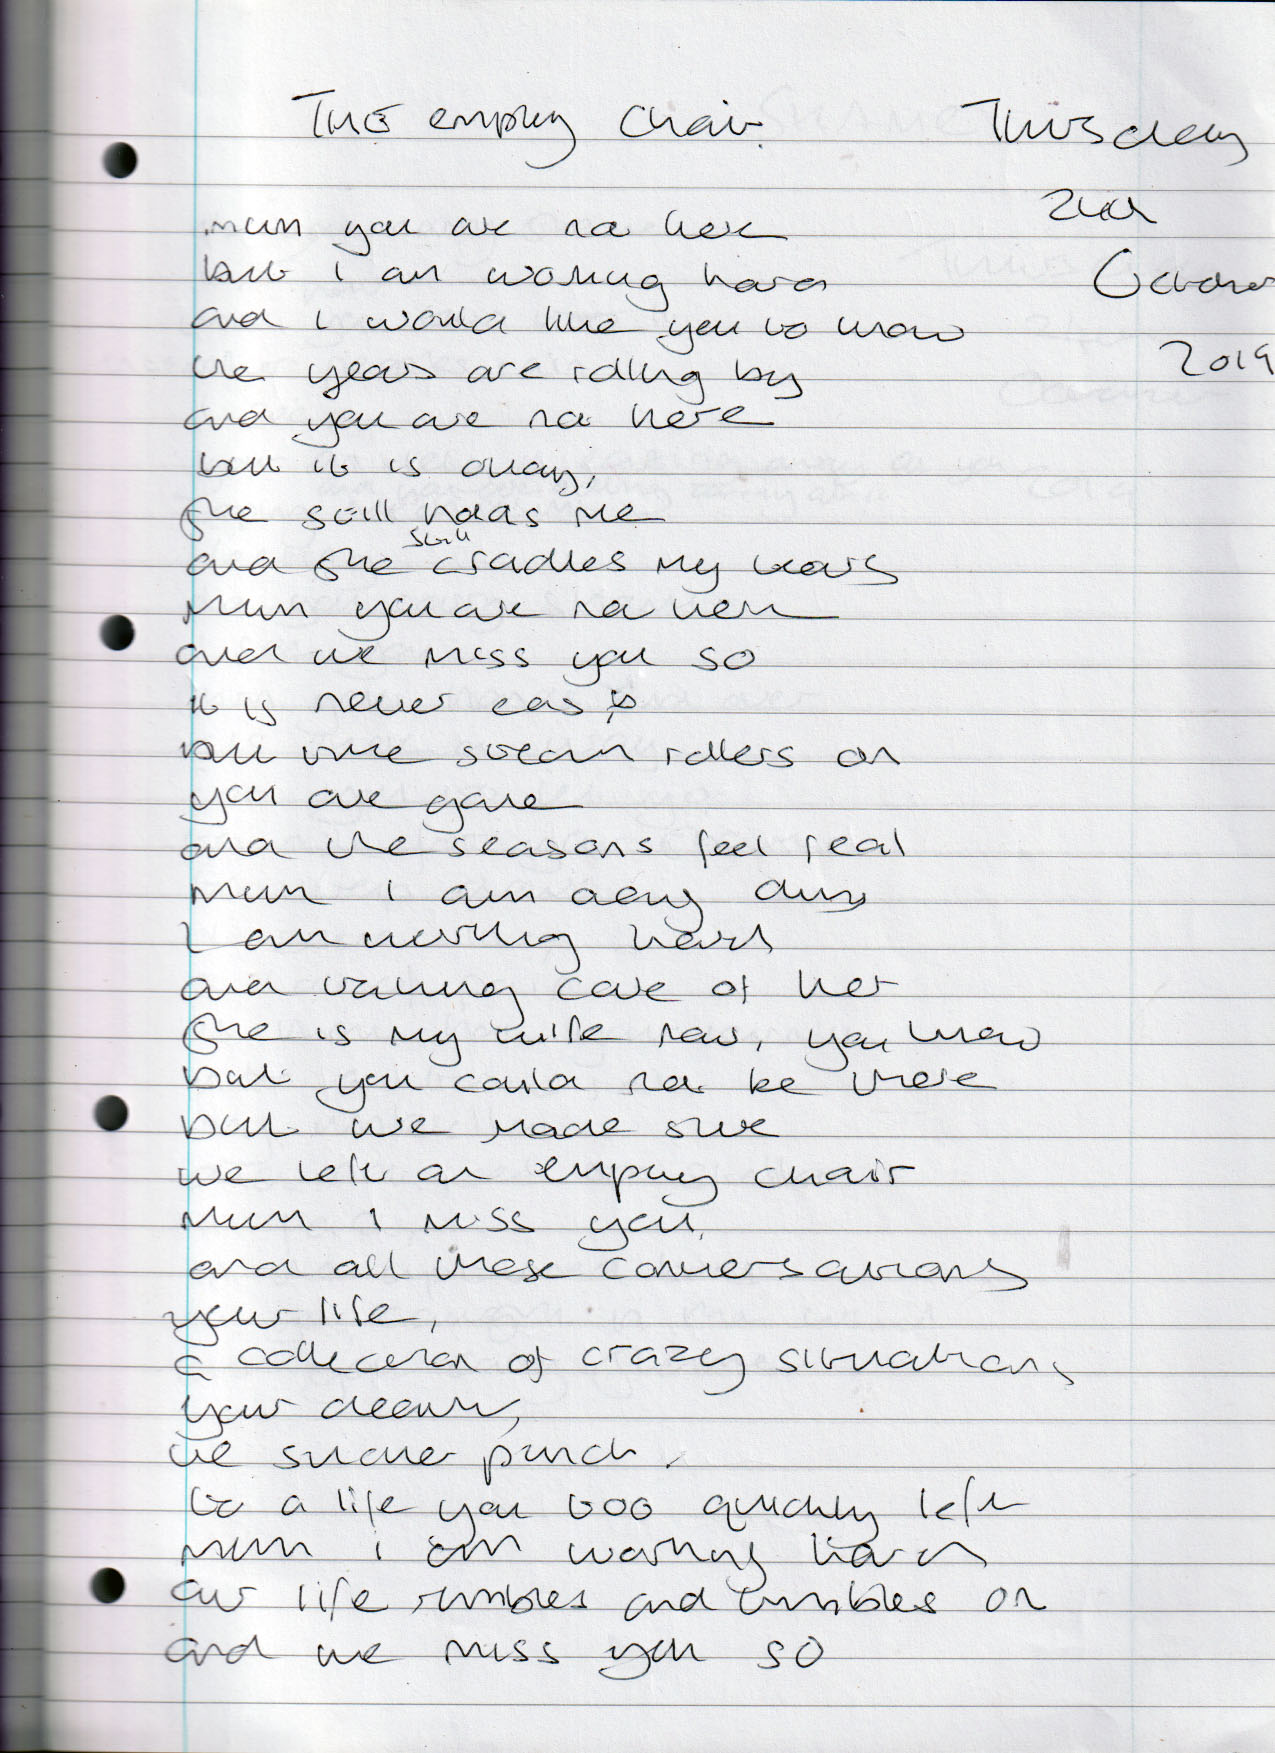 THE empty Chair. Thursday
24th
October
2019
mum you are not here
but I am working hard
and I would like you to know
the years are rolling by
and you are not here
but it is okay,
She still holds me
and She still cradles my tears
Mum you are not here
and we miss you so
it is never easy
but time steam rollers on
you are gone
and the seasons feel real
Mum I am doing okay
I am working hard
and taking care of her
She is my wife now, you know
but you could not be there
but we made sure
we left an empty chair
Mum I miss you,
and all these conversations
your life,
a collection of crazy situations
your death,
the sucker punch,
to a life you too quickly left
mum i am working hard
our life rumbles and tumbles on
and we miss you so